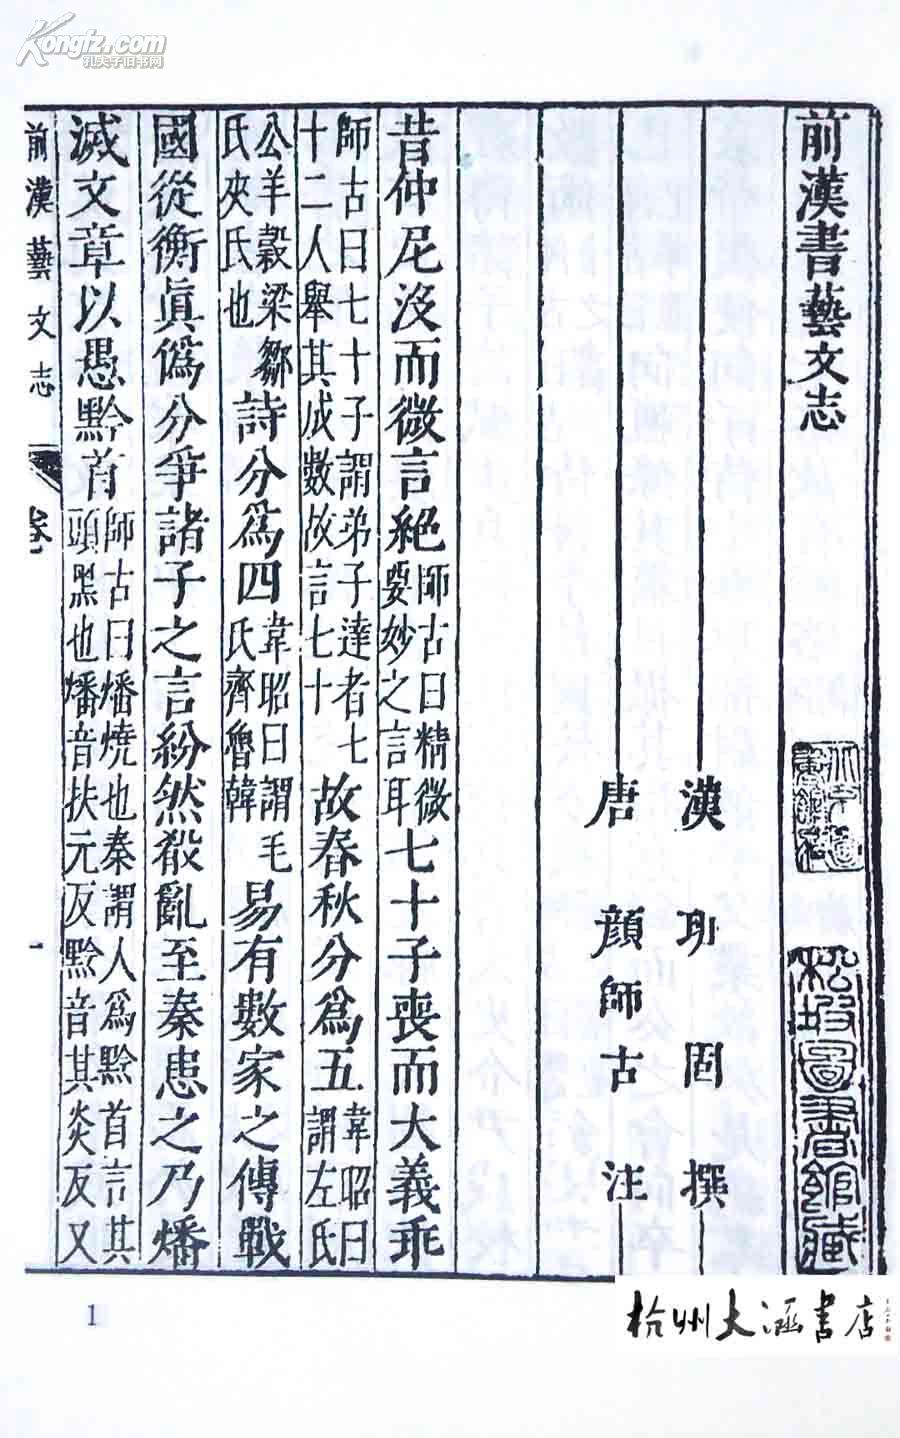 Kongfz.com
孔夫子旧书网
前漢書藝文志
松坡圖書館藏
漢 班 固 撰
唐 顏師古 注
昔仲尼沒而微言絕師古曰精微要妙之言耳七十子喪而大義乖
師古曰七十子謂弟子達者七十二人舉其成數故言七十故春秋分爲五韋昭曰謂左氏
公羊穀梁鄒氏夾氏也詩分爲四韋昭曰謂毛氏齊魯韓易有數家之傳戰
國從衡真僞分爭諸子之言紛然殽亂至秦患之乃燔
滅文章以愚黔首師古曰燔燒也秦謂人爲黔首言其頭黑也燔音扶元反黔音其炎反又
前漢藝文志
卷
一
1
杭州大涵書店